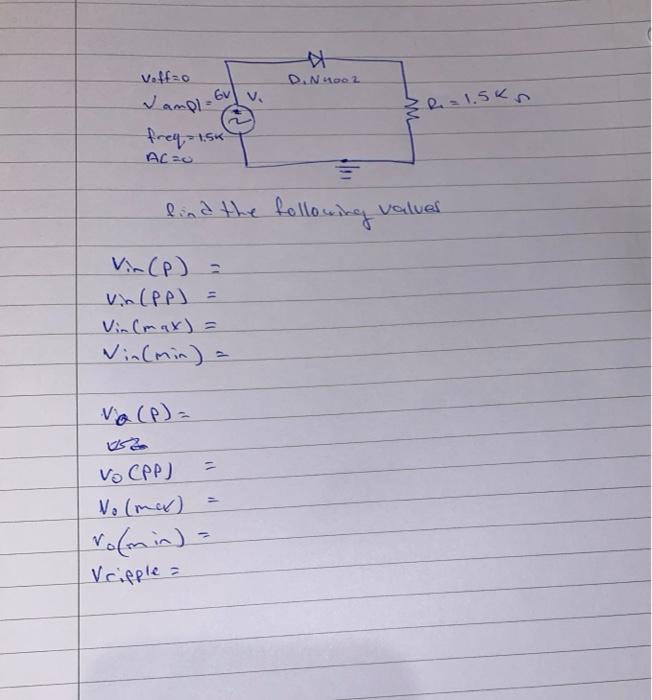 Voff=0
D1N4002
Vampl=6V V1
R1=1.5KΩ
freq=1.5K
AC=0
find the following values
Vin(P) =
Vin(PP) =
Vin(max) =
Vin(min) =
Vo(P)=
Vo(PP) =
Vo(max) =
Vo(min) =
Vripple=